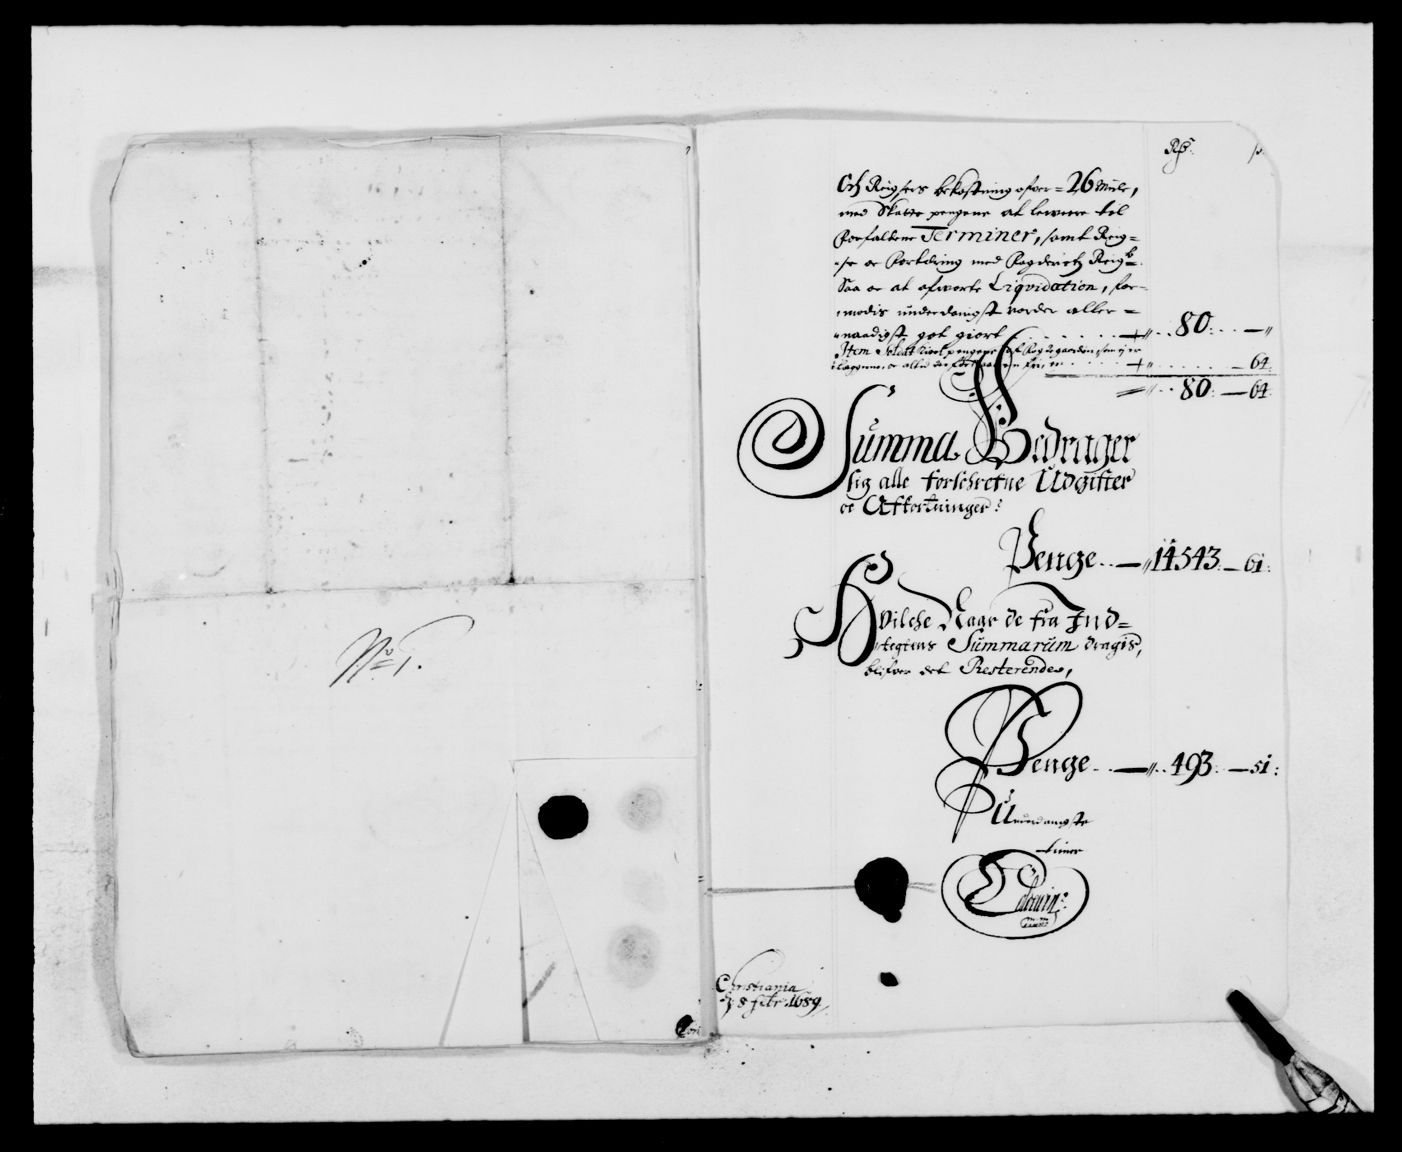 No 1.
Rdr. ß.
och Reigsers bekostning ofver = 26 Mile,
med Skatte pengene at levere til
forfaldene Terminer, samt Reig=
se oc fortæring med Reig
Saa oc at afværte Liqvidation, for-
modis underdanigst vorder aller =
naadigst got giort . . . . . 80: . . —
Item . . . . . — 64.
80: — 64.
Summa Bedrager
sig alle forschrefne Udgifter
oc Afkortninger:
Penge . . — 14543: — 61:
Hvilche Naar de fra Ind=
tegtens Summarum dragis,
blifver det Resterende,
Penge . . — . . 493. — 51:
Underdanigste
tiener
Christiania
d 8 febr: 1689,